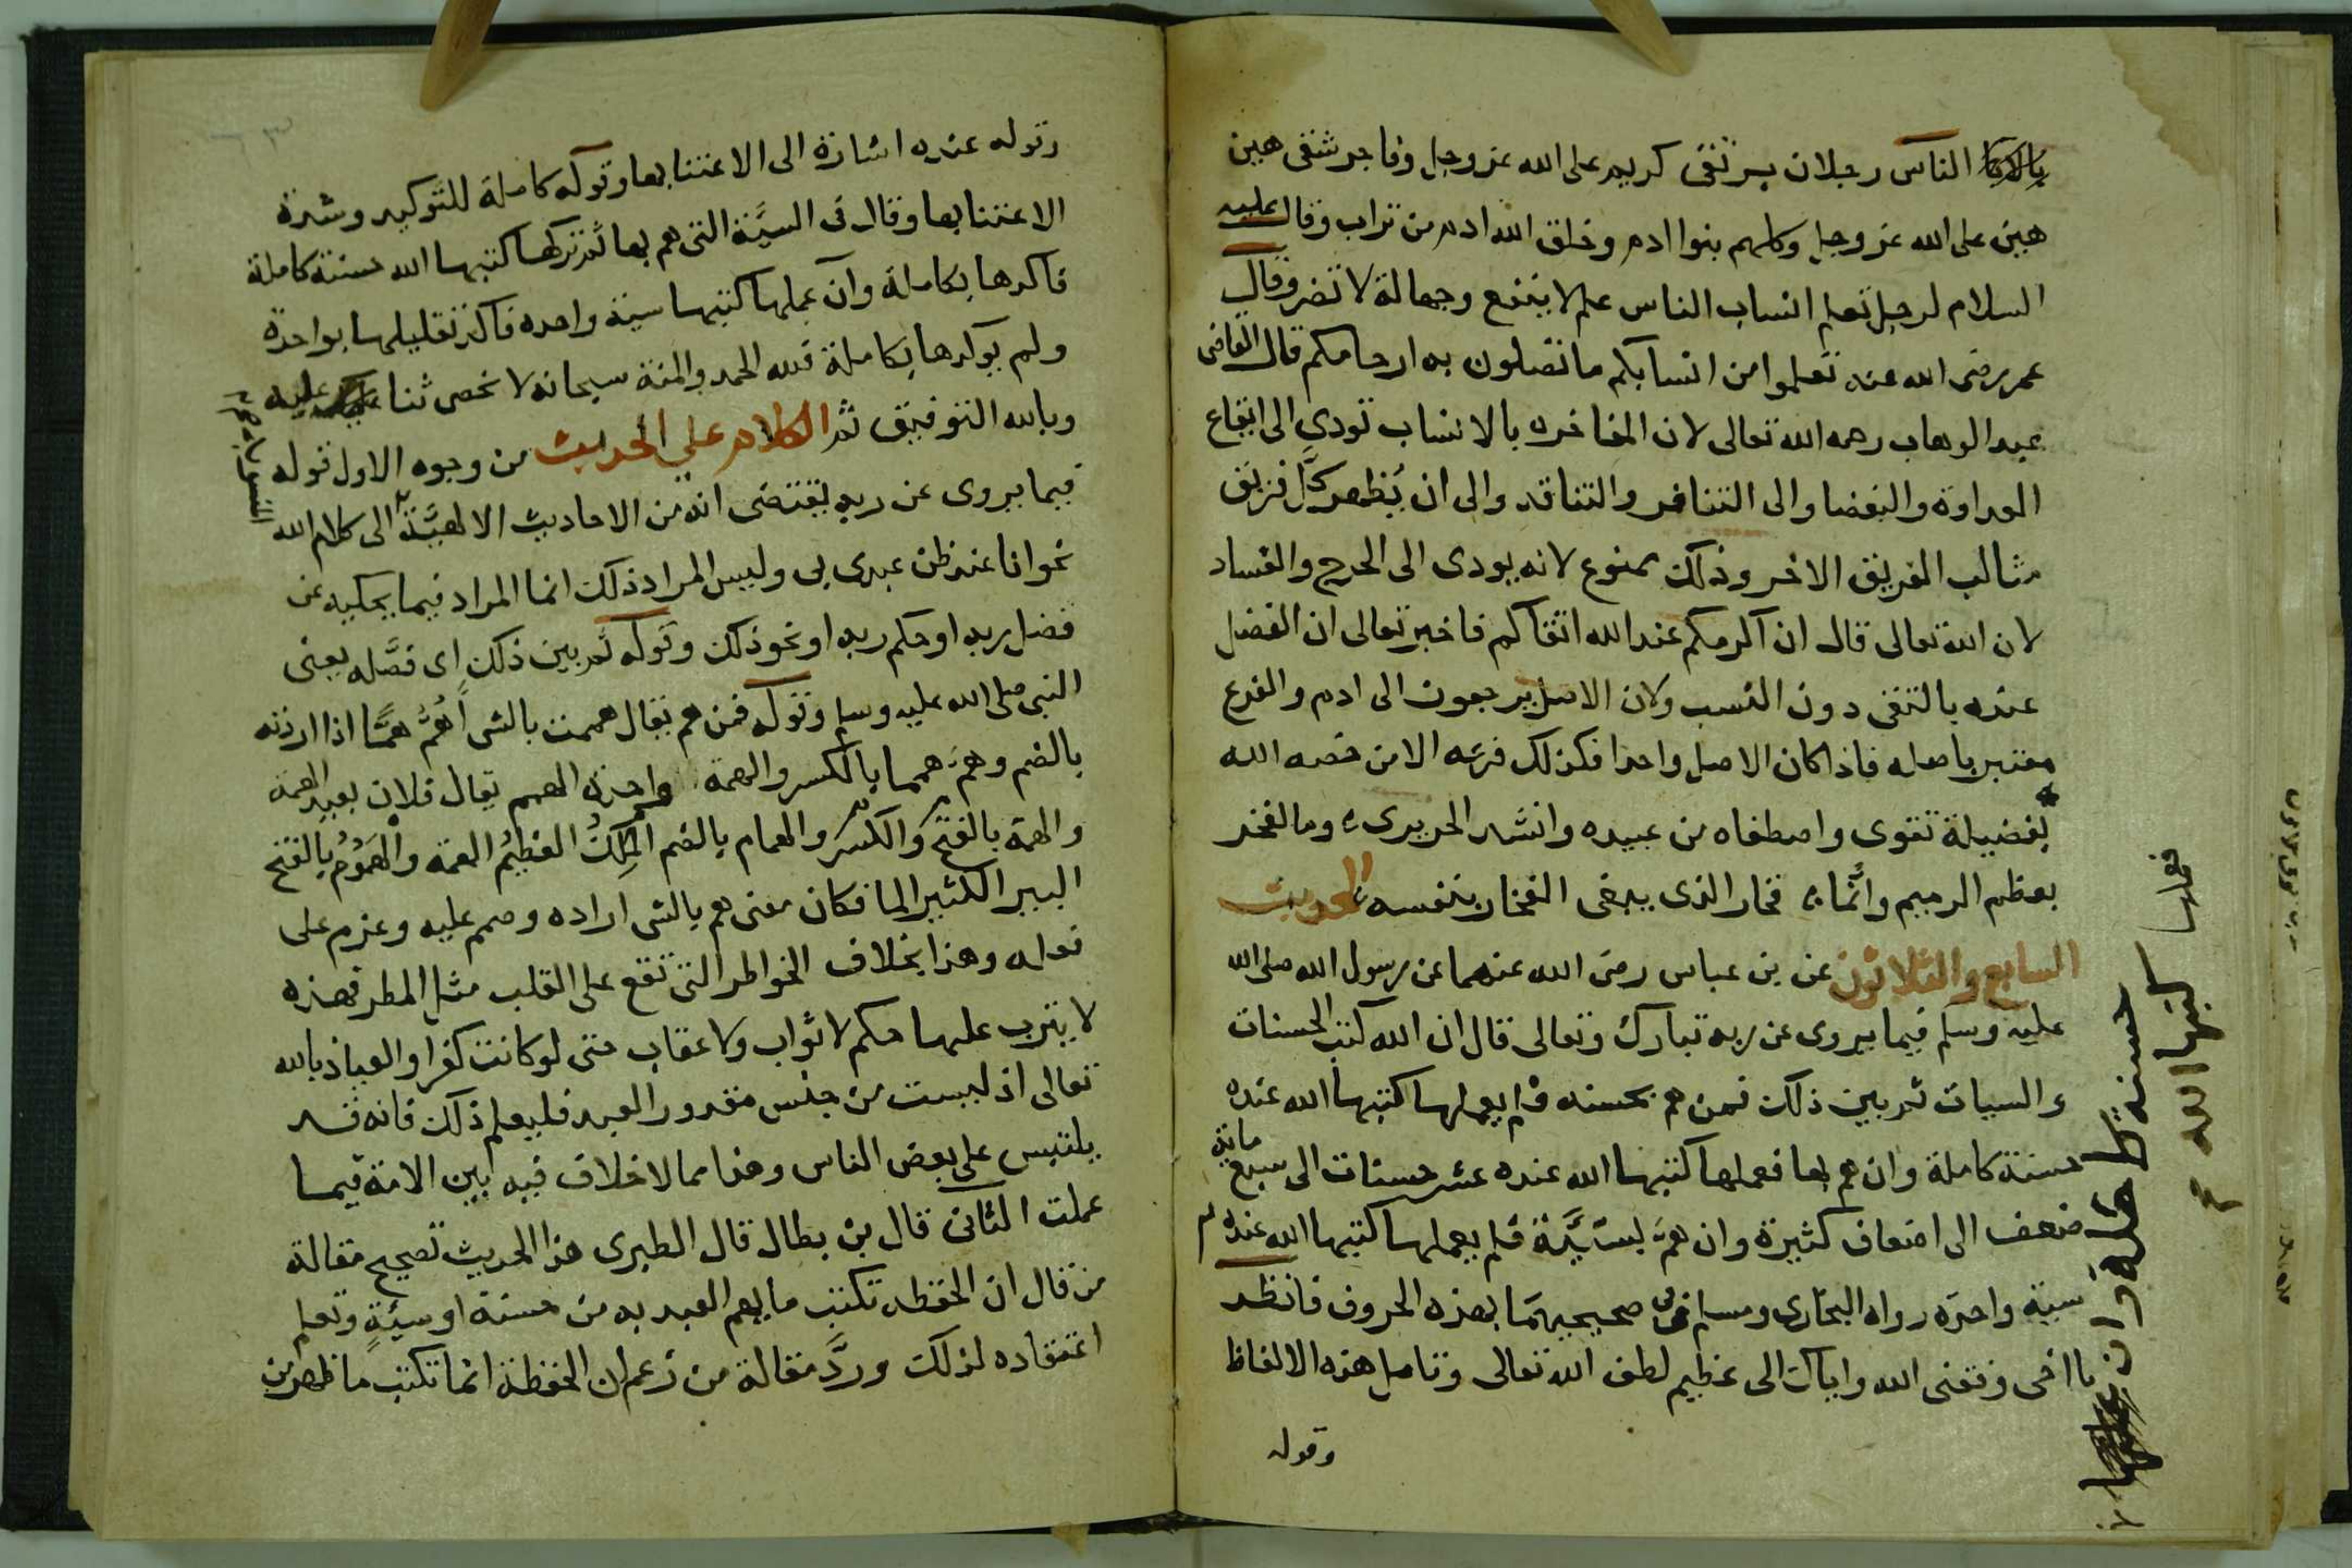 الناس رجلان بر تقى كريم على الله عز وجل وفاجر شقى هين
هين على الله عز وجل وكلهم بنوا ادم وخلق الله ادم من تراب وقال عليه
السلام لرجل تعلم انساب الناس علم لا ينفع وجهالة لا تضر وقال
عمر رضى الله عنه تعلموا من انسابكم ما تصلون به ارحامكم قال القاضى
عبد الوهاب رحمه الله تعالى لان المفاخره بالانساب تودى الى ايقاع
العداوة والبغضا والى التنافر والتناقد والى ان يُظهر كل فريق
مثالب الفريق الاخر وذلك ممنوع لانه يودى الى الحرج والفساد
لان الله تعالى قال ان اكرمكم عند الله اتقاكم فاخبر تعالى ان الفضل
عنده بالتقى دون النسب ولان الاصل يرجعون الى ادم والفرع
معتبر باصله فاذا كان الاصل واحدا فكذلك فرعه الا من خصه الله
بفضيلة تقوى واصطفاه من عبيده وانشد الحريرى وما الفخر
بعظم الرميم وانما فخار الذى يبغى الفخار بنفسه الحديث
السابع والثلاثون عن بن عباس رضى الله عنهما عن رسول الله صلى الله
عليه وسلم فيما يروى عن ربه تبارك وتعالى قال ان الله كتب الحسنات
والسيات ثم بين ذلك فمن هم بحسنه فلم يعملها كتبها الله عنده
حسنة كاملة وان هم بها فعملها كتبها الله عنده عشر حسنات الى سبع ماية
ضعف الى اضعاف كثيرة وان همّ بسَيّئة فلم يعملها كتبها الله عنده
سية واحده رواه البخارى ومسلم فى صحيحيهما بهذه الحروف فانظر
يا اخى وفقنى الله واياك الى عظيم لطف الله تعالى وتامل هذه الالفاظ
وقوله
حسنة كاملة وان
فعملها كتبها الله
وقوله عنده اشارة الى الاعتنا بها وقوله كاملة للتوكيد وشدة
الاعتنا بها وقال فى السيّئة التى هم بها ثم تركها كتبها الله حسنة كاملة
فاكدها بكاملة وان عملها كتبها سية واحده فاكد تقليلها بواحدة
ولم يوكدها بكاملة فلله الحمد والمنة سبحانه لا نحصى ثنا عليه
وبالله التوفيق ثم الكلام على الحديث من وجوه الاول قوله
فيما يروى عن ربه يقتضى انه من الاحاديث الالهيّة الى كلام الله
المنسوبة
نحو انا عند ظن عبدى بى وليس المراد ذلك انما المراد فيما يحكيه عن
فضل ربه او حكم ربه او نحو ذلك وقوله ثم بين ذلك اى فصّله يعنى
النبى صلى الله عليه وسلم وقوله فمن هم يقال هممت بالشى أهُمُّ همًّا اذا اردته
بالضم وهَمّ هميما بالكسر والهمة واحدة الهمم يقال فلان بعيد الهمة
والهمة بالفتح والكسر والهمام بالضم الملِكُ العظيمُ الهمة والهَمُومُ بالفتح
البير الكثير الما فكان معنى هم بالشى اراده وصمم عليه وعزم على
فعله وهذا بخلاف الخواطر التى تقع على القلب مثل المطر فهذه
لا يترب عليها حكم لا ثواب ولا عقاب حتى لو كانت كفرا والعياذ بالله
تعالى اذ ليست من جنس مقدور العبد فليعلم ذلك فانه قد
يلتبس على بعض الناس وهذا مما لا خلاف فيه بين الامة فيما
عملت الثانى قال بن بطال قال الطبرى هذا الحديث تصحيح مقالة
من قال ان الحفظه تكتب ما يهم العبد به من حسنة او سيئةٍ وتعلم
اعتقاده لذلك وردَّ مقالة من زعم ان الحفظة انما تكتب ما ظهر من